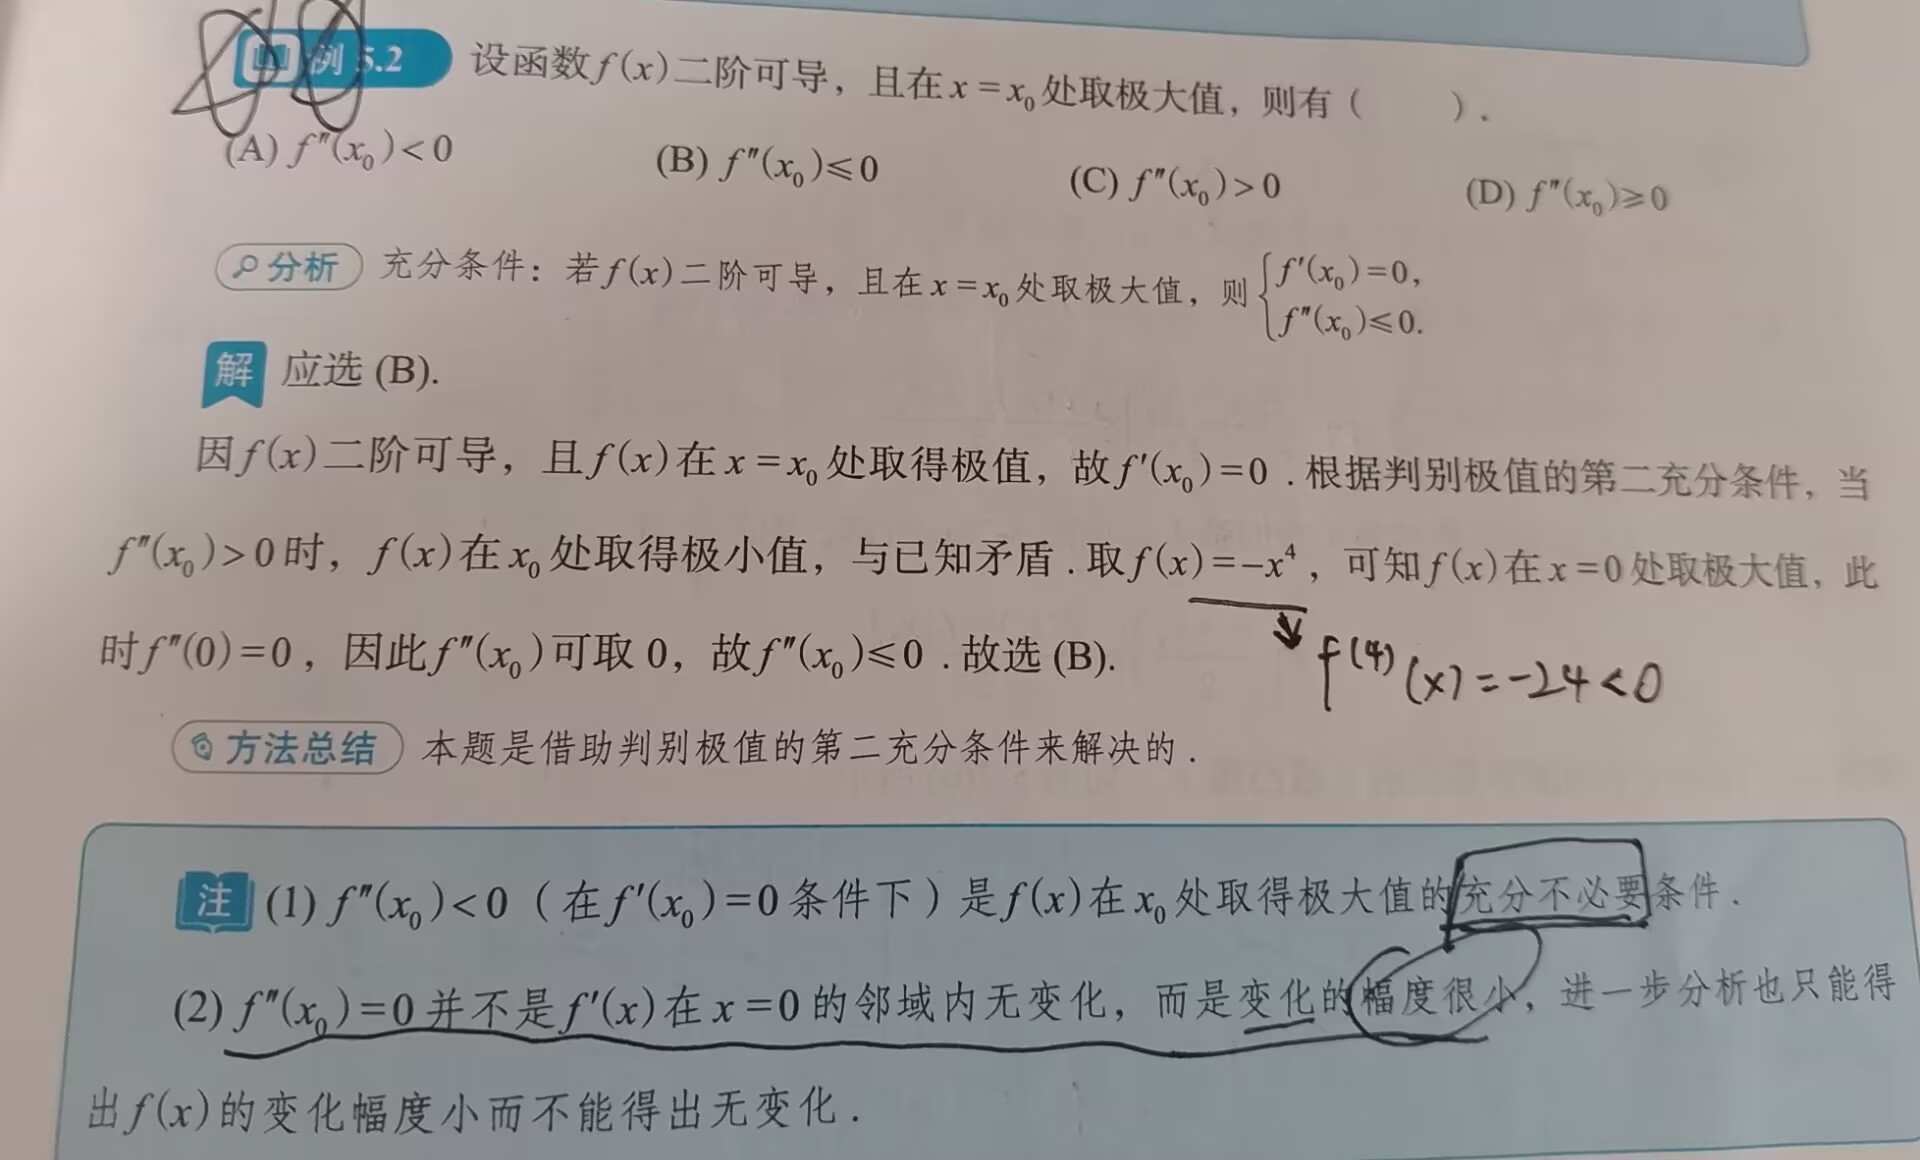 例 5.2 设函数f(x)二阶可导，且在x=x₀处取极大值，则有（　　）.
(A) f″(x₀)<0 (B) f″(x₀)≤0 (C) f″(x₀)>0 (D) f″(x₀)≥0
分析 充分条件：若f(x)二阶可导，且在x=x₀处取极大值，则{f′(x₀)=0,
f″(x₀)≤0.
解 应选 (B).
因f(x)二阶可导，且f(x)在x=x₀处取得极值，故f′(x₀)=0 .根据判别极值的第二充分条件，当
f″(x₀)>0时，f(x)在x₀处取得极小值，与已知矛盾.取f(x)=-x⁴，可知f(x)在x=0处取极大值，此
时f″(0)=0，因此f″(x₀)可取0，故f″(x₀)≤0 .故选 (B).
f⁽⁴⁾(x)=-24<0
方法总结 本题是借助判别极值的第二充分条件来解决的.
注 (1) f″(x₀)<0（在f′(x₀)=0条件下）是f(x)在x₀处取得极大值的充分不必要条件.
(2) f″(x₀)=0并不是f′(x)在x=0的邻域内无变化，而是变化的幅度很小，进一步分析也只能得
出f(x)的变化幅度小而不能得出无变化.